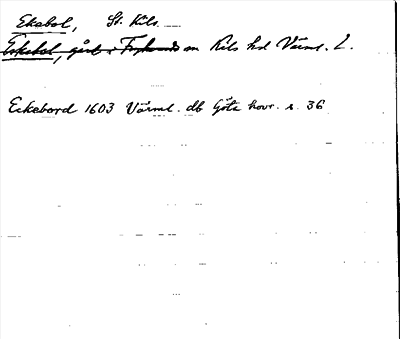 Ekabol, St. Kils
Eskebol, gård i sn Kils hd Värml. L.
Eckebord 1603 Värml. db Göta hovr. s. 36